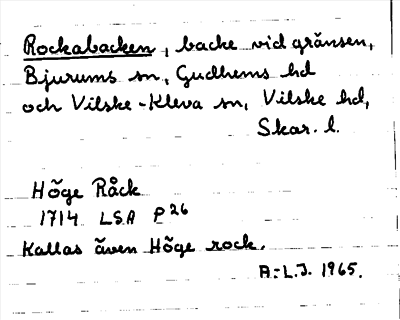 Rockabacken, backe vid gränsen,
Bjurums sn, Gudhems hd
och Vilske-Kleva sn, Vilske hd,
Skar. l.
Höge Råck
1714 LSA P26
Kallas även Höge rock.
A.-L.J. 1965.